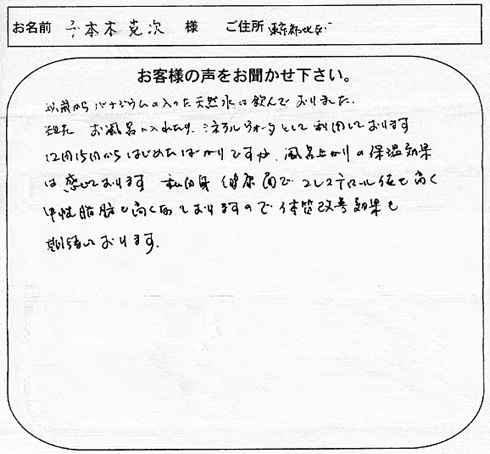 お名前 本木克次 様 ご住所 東京都北区
お客様の声をお聞かせ下さい。
以前からバナジウムの入った天然水は飲んでおりました。
お風呂に入れたり、ミネラルウォータとして利用しております
12月15日からはじめたばかりですが、風呂上がりの保温効果
は感じております 私自身 健康面でコレステロール値も高く
中性脂肪も高くなっておりますので体質改善効果も
期待しております。